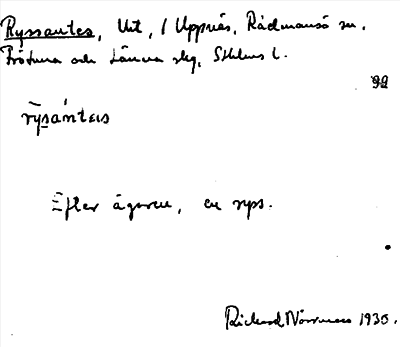 Ryssantes, Utt, / Uppnäs, Rådmansö sn.
Frötuna och Länna skg, Sthlms l.
92
rysántəs
Efter ägaren, en ryss.
Richard Norrman 1930.